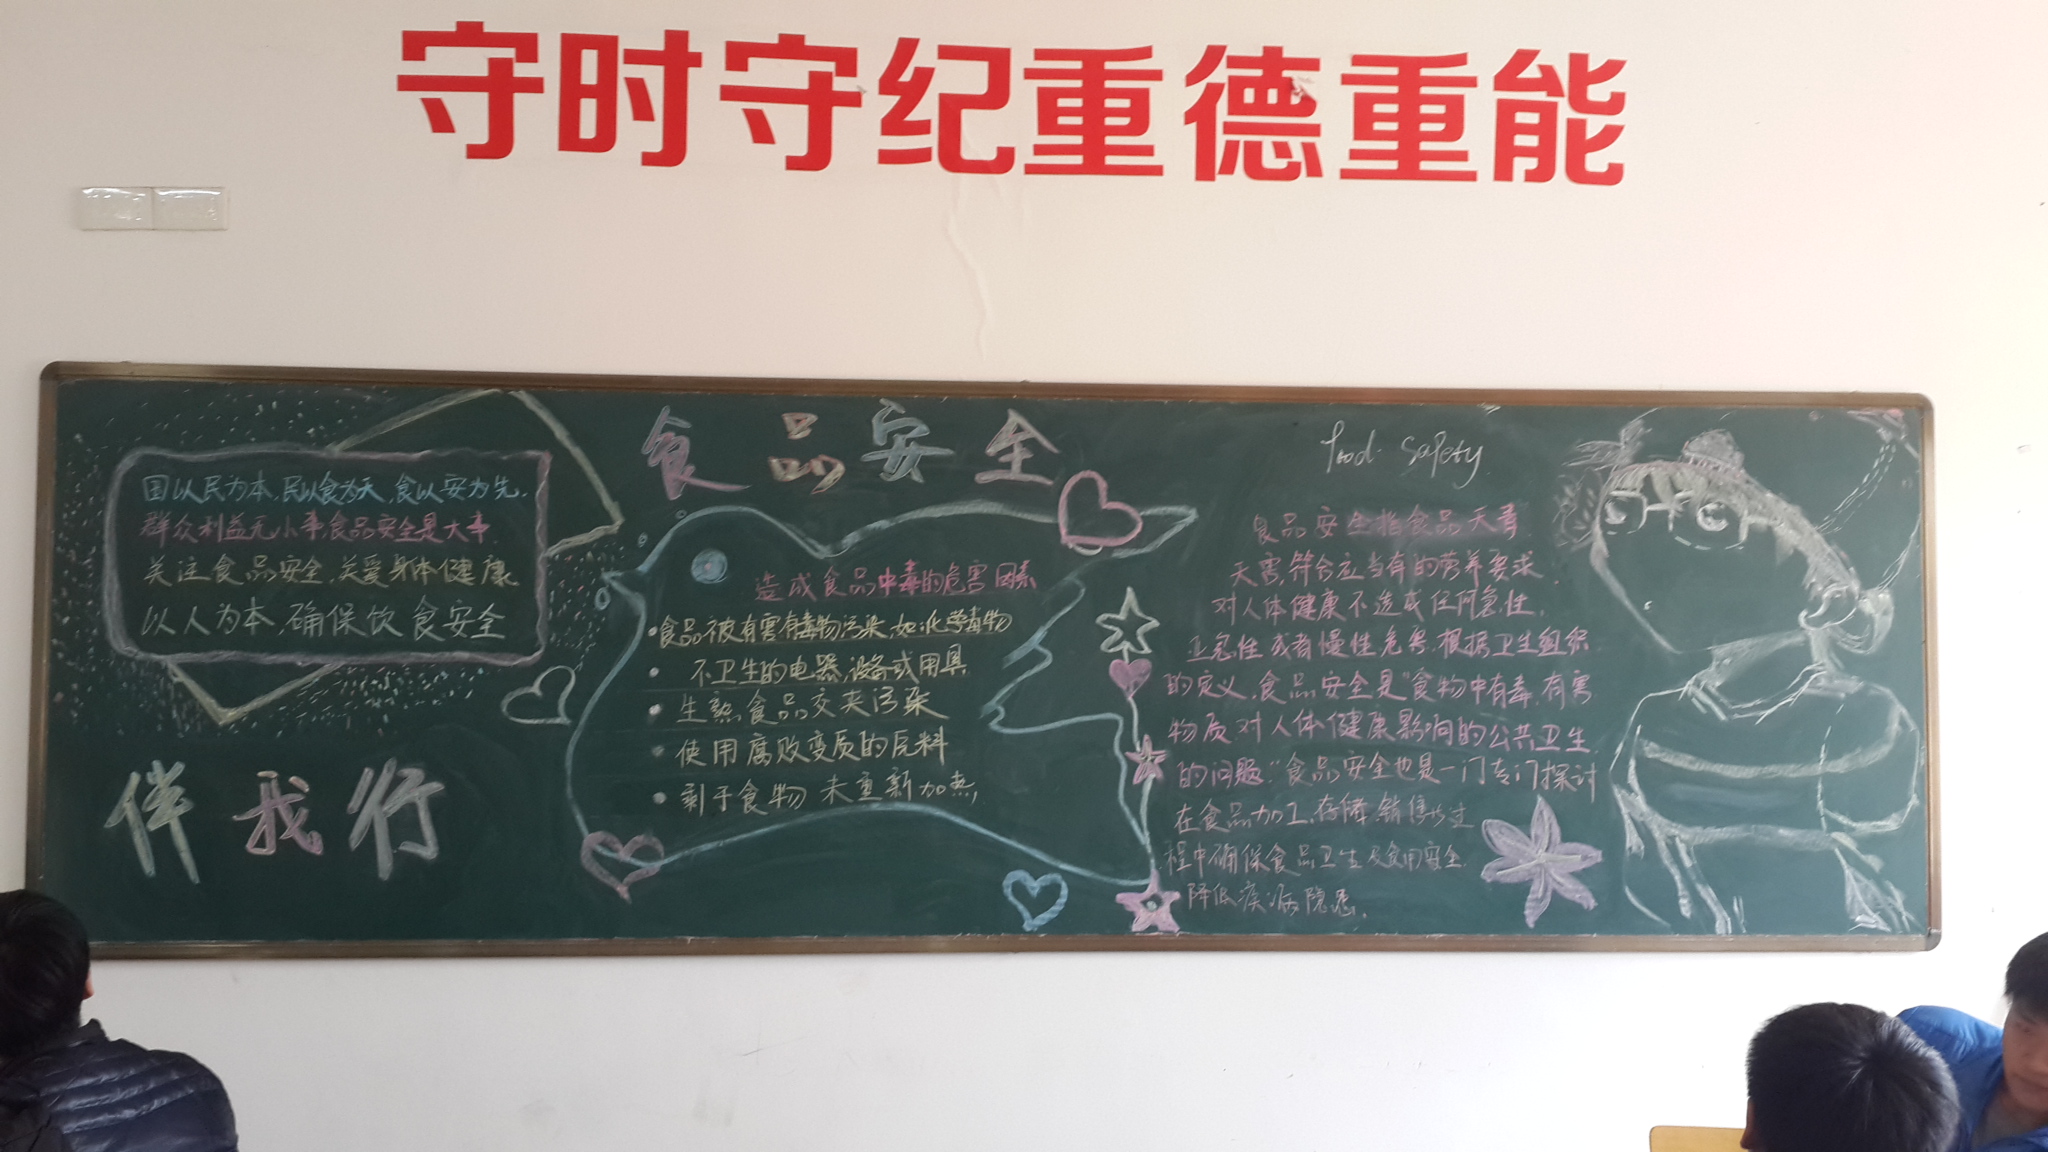 守时守纪重德重能
食品安全
国以民为本,民以食为天,食以安为先.
群众利益无小事,食品安全是大事.
关注食品安全,关爱身体健康
以人为本,确保饮食安全
伴我行
造成食品中毒的危害因素
食品被有害有毒物污染,如化学毒物
不卫生的电器,设备或用具
生熟食品交夹污染
使用腐败变质的原料
剩于食物 未重新加热,
food safety
食品安全指食品无毒
无害,符合应当有的营养要求.
对人体健康不造成任何急性,
亚急性或者慢性危害.根据卫生组织
的定义,食品安全是"食物中有毒,有害
物质对人体健康影响的公共卫生
的问题."食品安全也是一门专门探讨
在食品加工,存储,销售等过
程中确保食品卫生及食用安全.
降低疾病隐患.